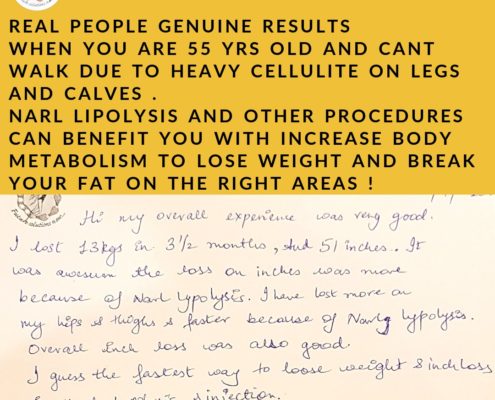 REAL PEOPLE GENUINE RESULTS
WHEN YOU ARE 55 YRS OLD AND CANT
WALK DUE TO HEAVY CELLULITE ON LEGS
AND CALVES .
NARL LIPOLYSIS AND OTHER PROCEDURES
CAN BENEFIT YOU WITH INCREASE BODY
METABOLISM TO LOSE WEIGHT AND BREAK
YOUR FAT ON THE RIGHT AREAS !
Hi my overall experience was very good.
I lost 13kgs in 3½ months, and 51 inches. It
was awesum the loss on inches was more
because of Narl lypolysis. I have lost more on
my hips & thighs & faster because of Narl lypolysis.
Overall inch loss was also good.
I guess the fastest way to loose weight & inchloss
injection.